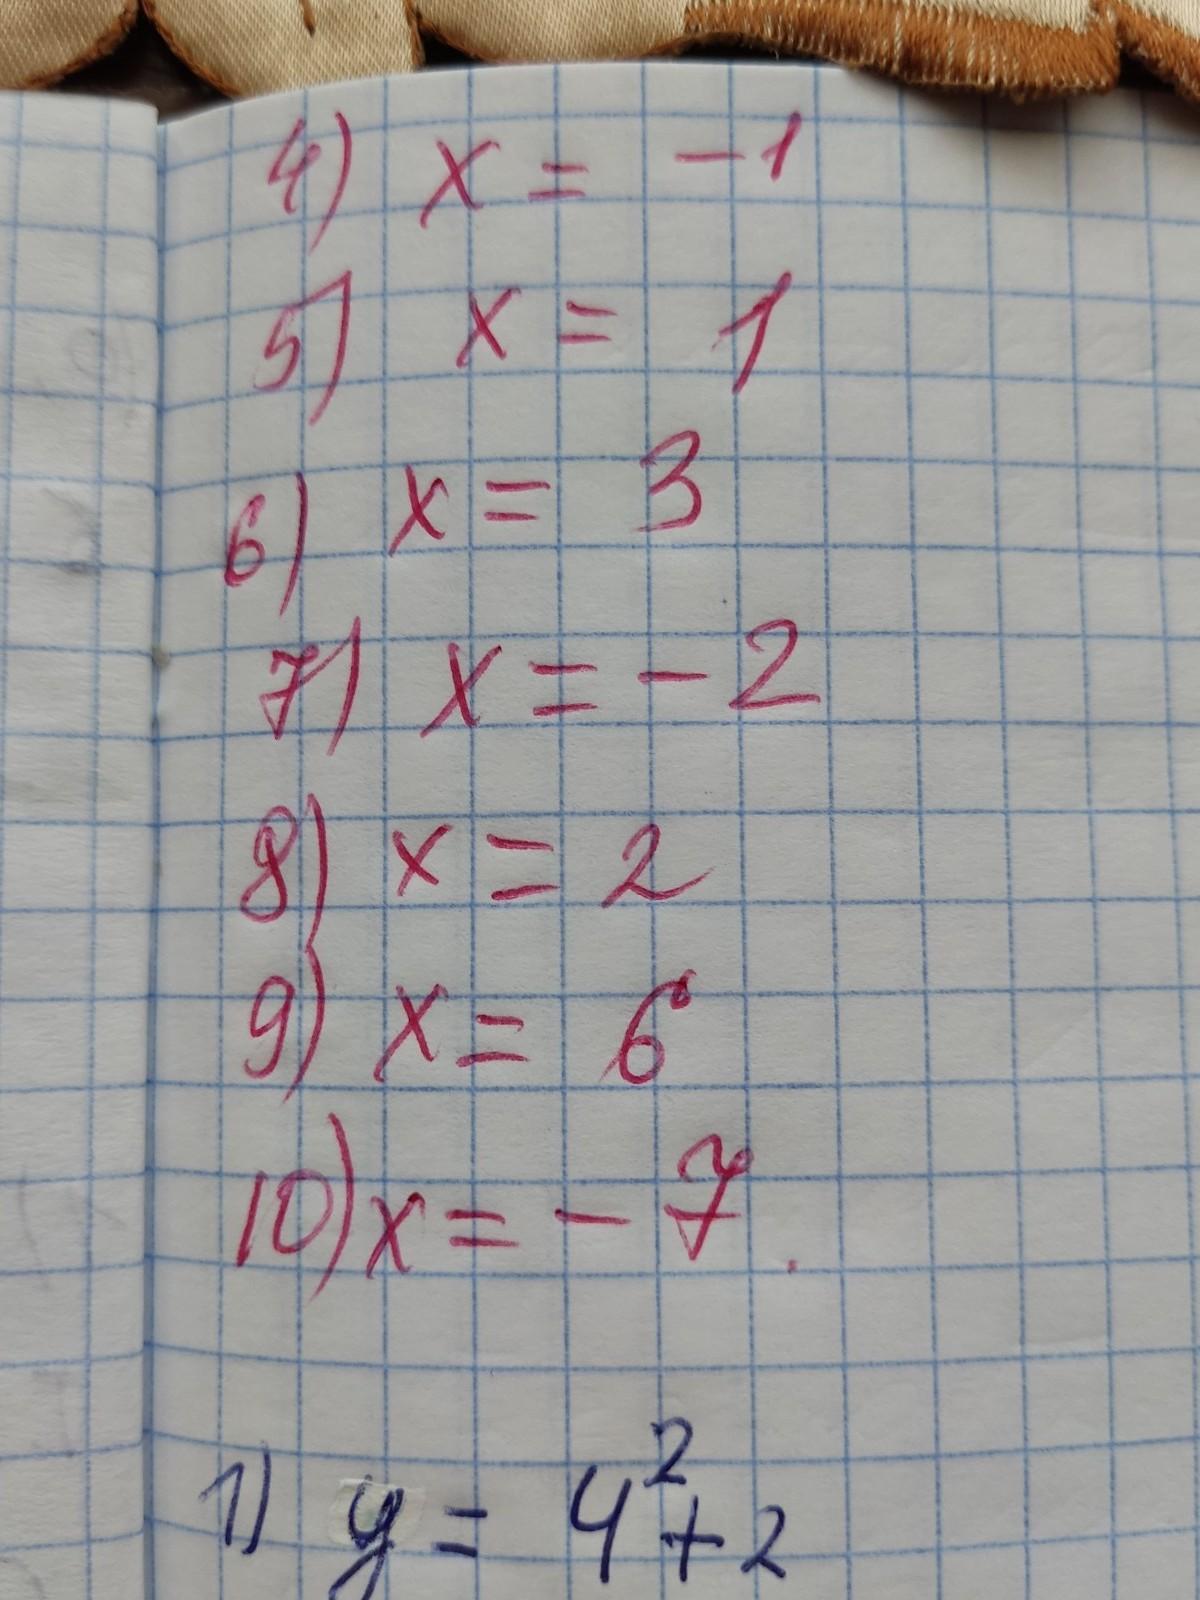 4) x = -1
5) x = 1
6) x = 3
7) x = -2
8) x = 2
9) x = 6
10) x = -7.
1) y = 4²+2